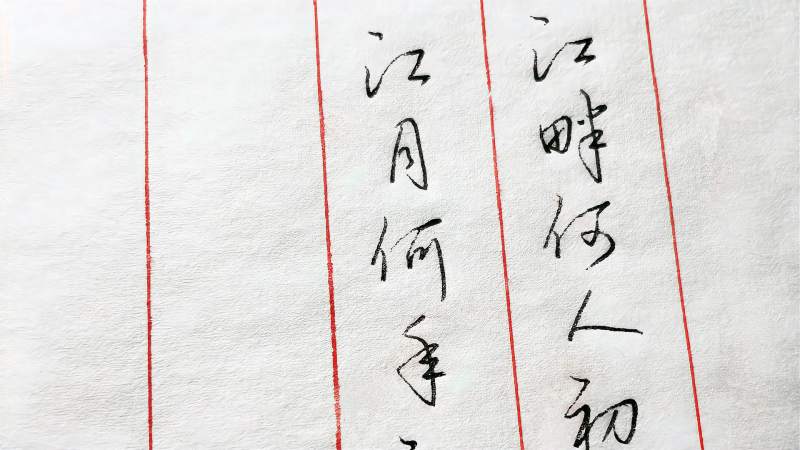 江畔何人初
江月何年